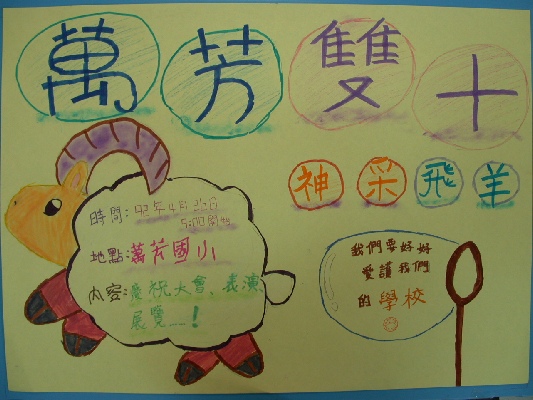 萬芳雙十
神采飛羊
時間:92年4月26日
9:00開始
地點:萬芳國小
內容:慶祝大會、表演
展覽……!
我們要好好
愛護我們
的學校